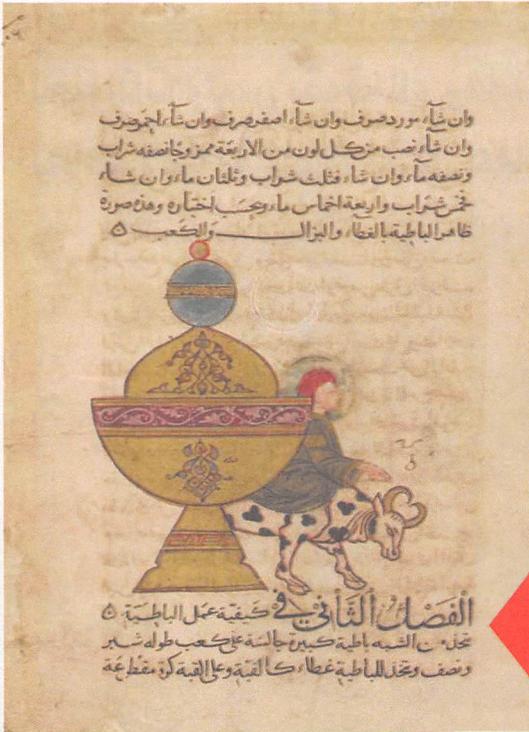 وان شآء مورد صرف وان شآء اصفر صرف وان شآء احمر صرف
وان شآء نصب من كل لون من الاربعة ممزوجا نصفه شراب
ونصفه مآء وان شاء فثلث شراب وثلثان مآء وان شاء
فخمس شراب واربعة اخماس مآء وبحسب اختياره وهذه صورة
ظاهر الباطية بالغطاء والبزال والكعب ه
الفصل الثاني في كيفية عمل الباطية ه
تتخذ من الشبه باطية كبيرة جالسة على كعب طوله شبر
ونصف وتتخذ للباطية غطاء كالقبة وعلى القبة كرة مقطعة